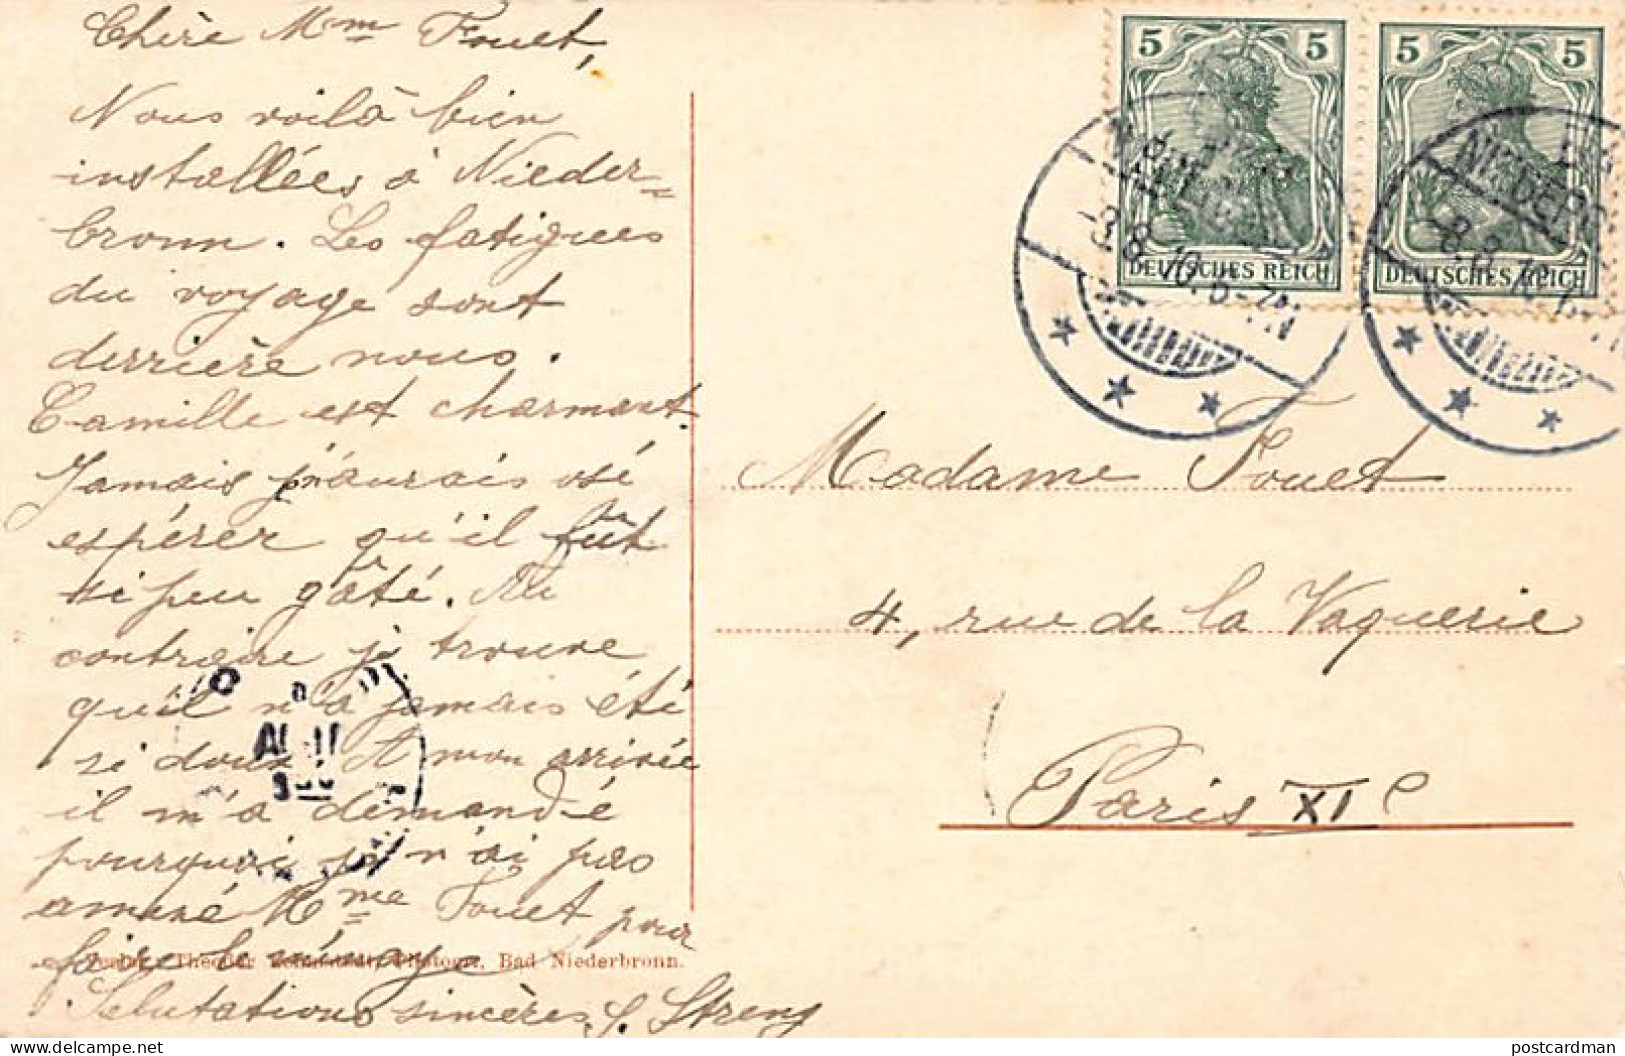 Chère Mme Fouet,
Nous voilà bien
installées à Nieder=
bronn. Les fatigues
du voyage sont
derrière nous.
Camille est charmant.
Jamais je n'aurais osé
espérer qu'il fût
si peu gâté. Au
contraire je trouve
qu'il n'a jamais été
si doux. A mon arrivée
il m'a demandé
pourquoi je n'ai pas
amené Mme Fouet pour
faire le ménage
Salutations sincères
Verlag Theodor Photogr. Bad Niederbronn.
5 5
DEUTSCHES REICH
5 5
DEUTSCHES REICH
NIEDERB
-3.8.10.6-7N
Madame Fouet
4, rue de la Vaquerie
Paris XIe
postcardman